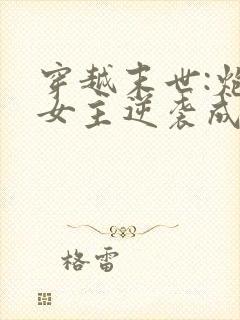 穿越末世:炮
女主逆袭成
格雷